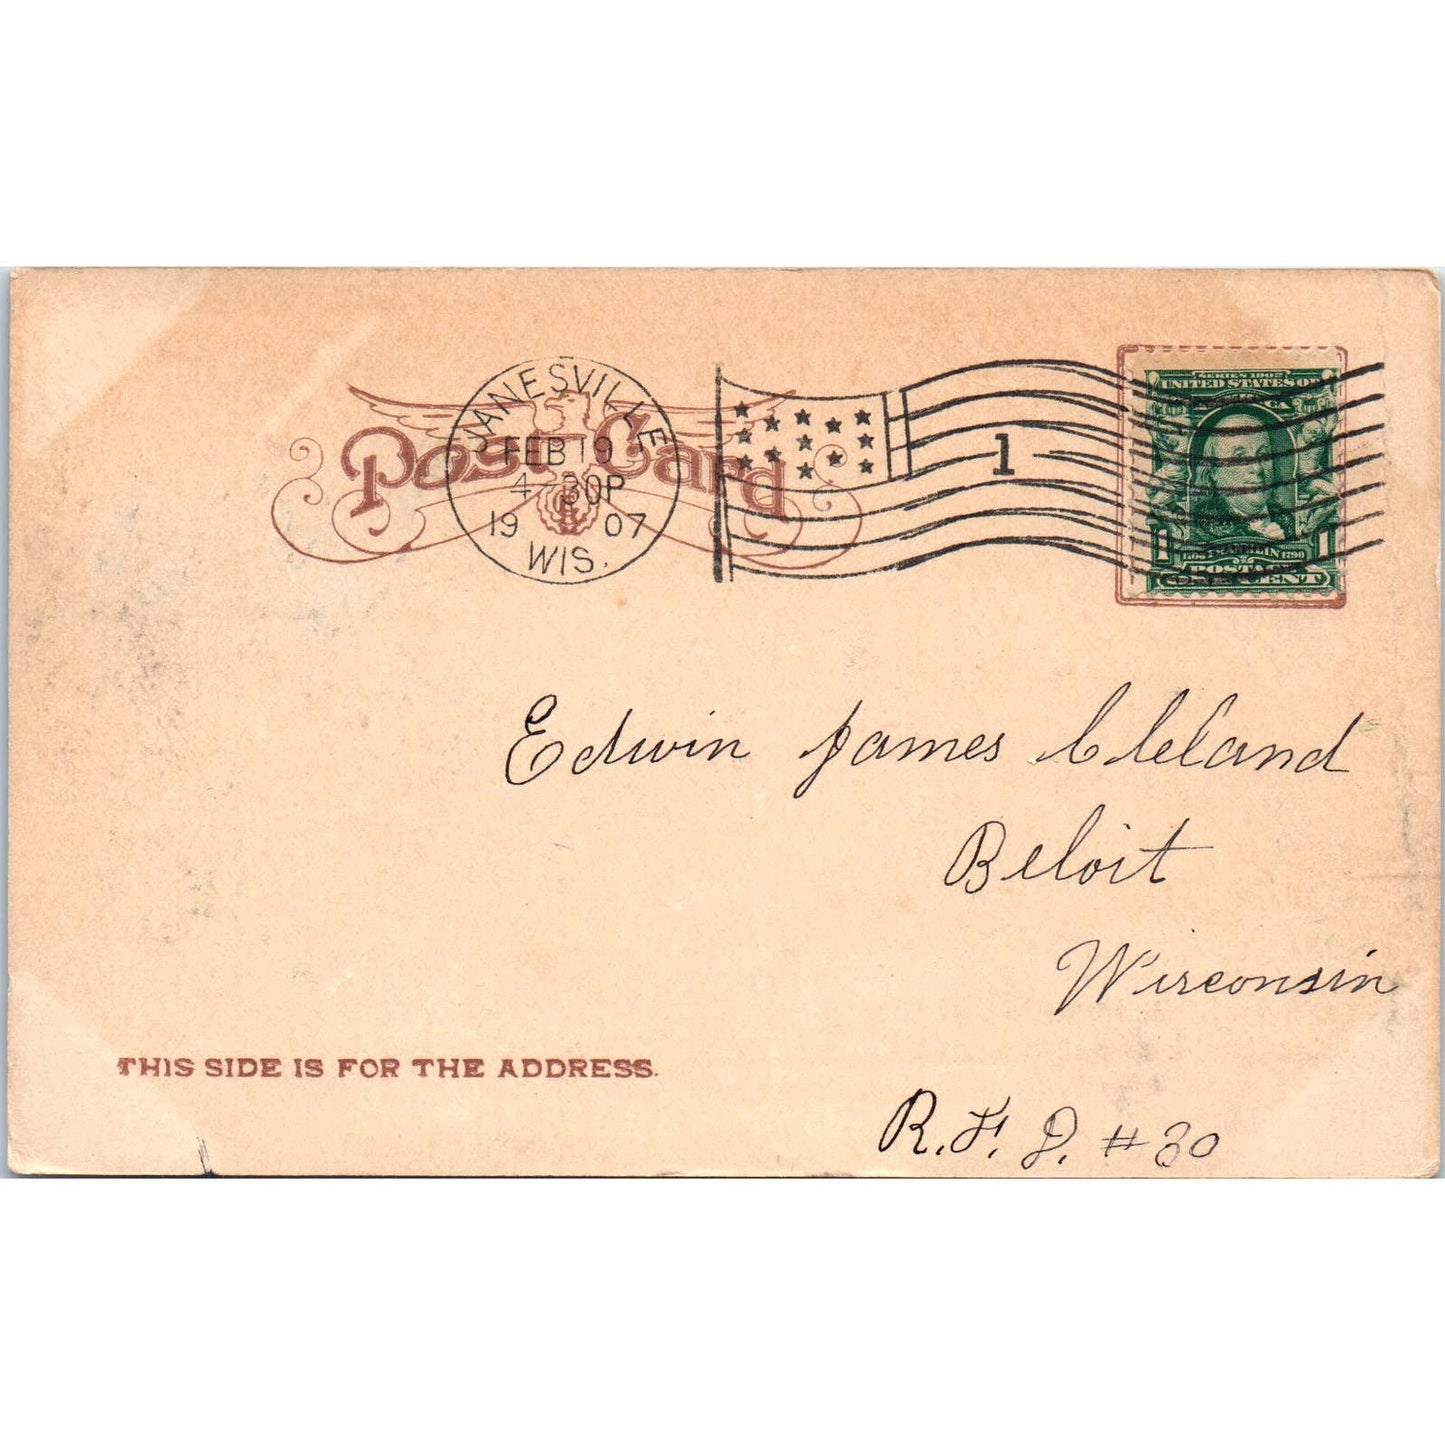 Post Card
JANESVILLE
FEB 19
4-30P
19 07
WIS.
1
SERIES 1902
UNITED STATES OF
AMERICA
1 FRANKLIN 1790 1
POSTAGE
ONE CENT
Edwin James Cleland
Beloit
Wisconsin
THIS SIDE IS FOR THE ADDRESS.
R.F.D. #30